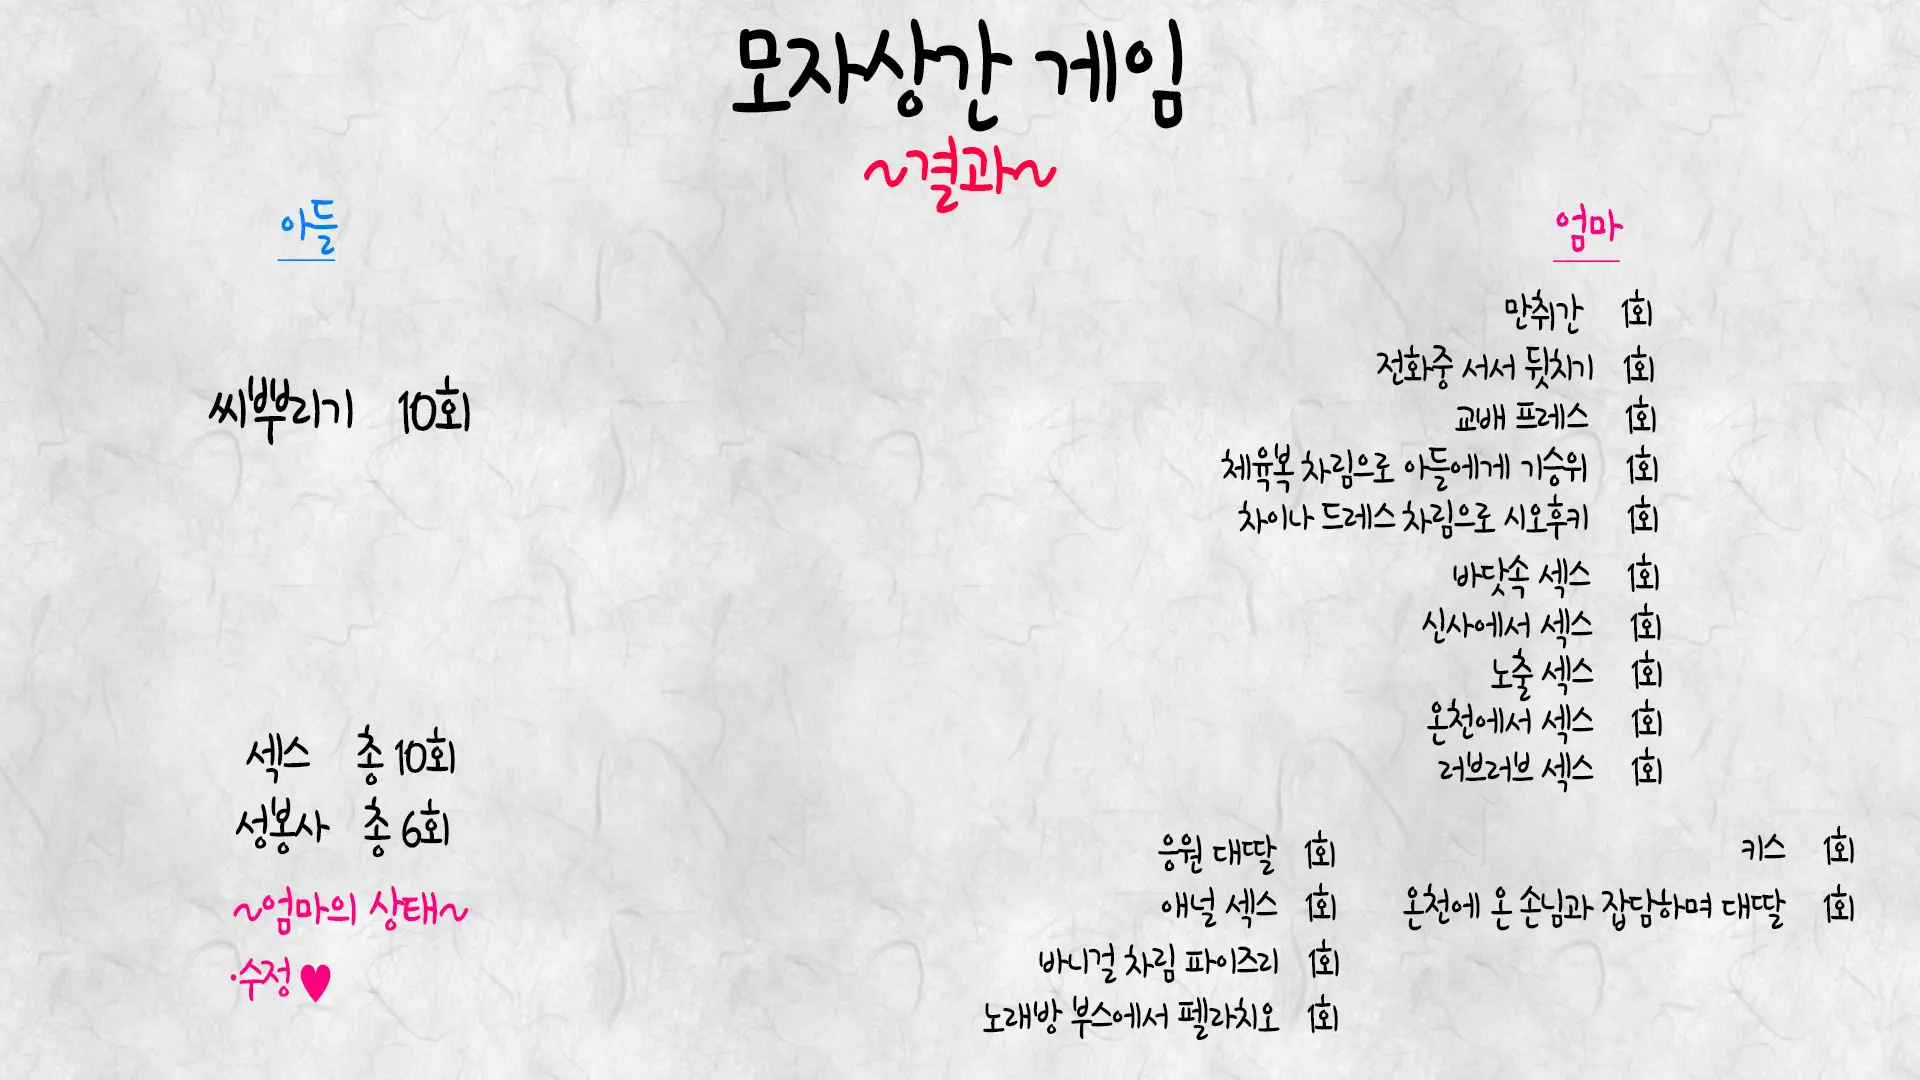 모자상간 게임
~결과~
아들
씨뿌리기 10회
섹스 총 10회
성봉사 총 6회
~엄마의 상태~
·수정♥
엄마
만취간 1회
전화중 서서 뒷치기 1회
교배 프레스 1회
체육복 차림으로 아들에게 기승위 1회
차이나 드레스 차림으로 시오후키 1회
바닷속 섹스 1회
신사에서 섹스 1회
노출 섹스 1회
온천에서 섹스 1회
러브러브 섹스 1회
응원 대딸 1회
애널 섹스 1회
바니걸 차림 파이즈리 1회
노래방 부스에서 펠라치오 1회
키스 1회
온천에 온 손님과 잡담하며 대딸 1회